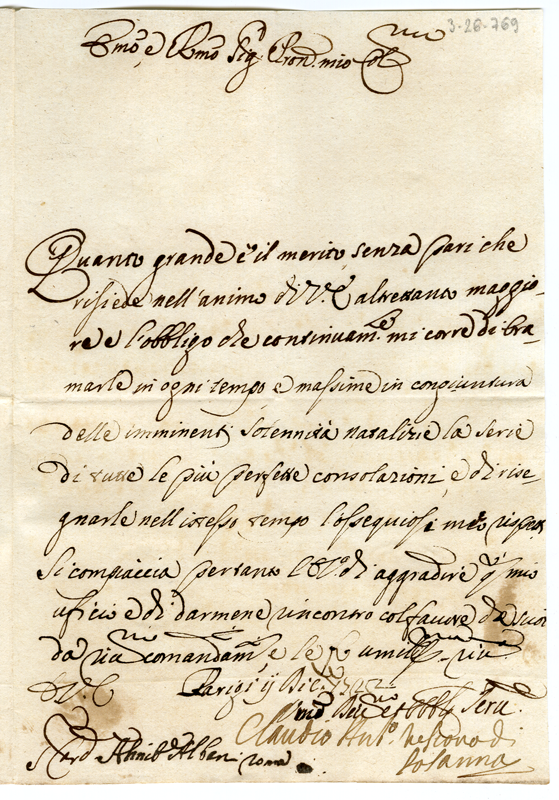 3-26-769
Emo e Rmo Sigr Pron. mio Colmo
Quanto grande è il merito senza pari che
risiede nell'animo di V. E. altretanto maggio-
re è l'obbligo che continuam.te mi corre di bra-
marle in ogni tempo e massime in congiuntura
delle imminenti Solennità natalizie la serie
di tutte le più perfette consolazioni, e di rise-
gnarle nell'istesso tempo l'ossequiosi miei
Si compiaccia pertanto l' di aggradire mio
uficio e di darmene rincontro col favore de suoi
comandam.ti, e le
di V. E. Parigi Dic.
Serv.
Claudio Ant.o Vescovo di
Losanna
Card Annib. Albani Roma